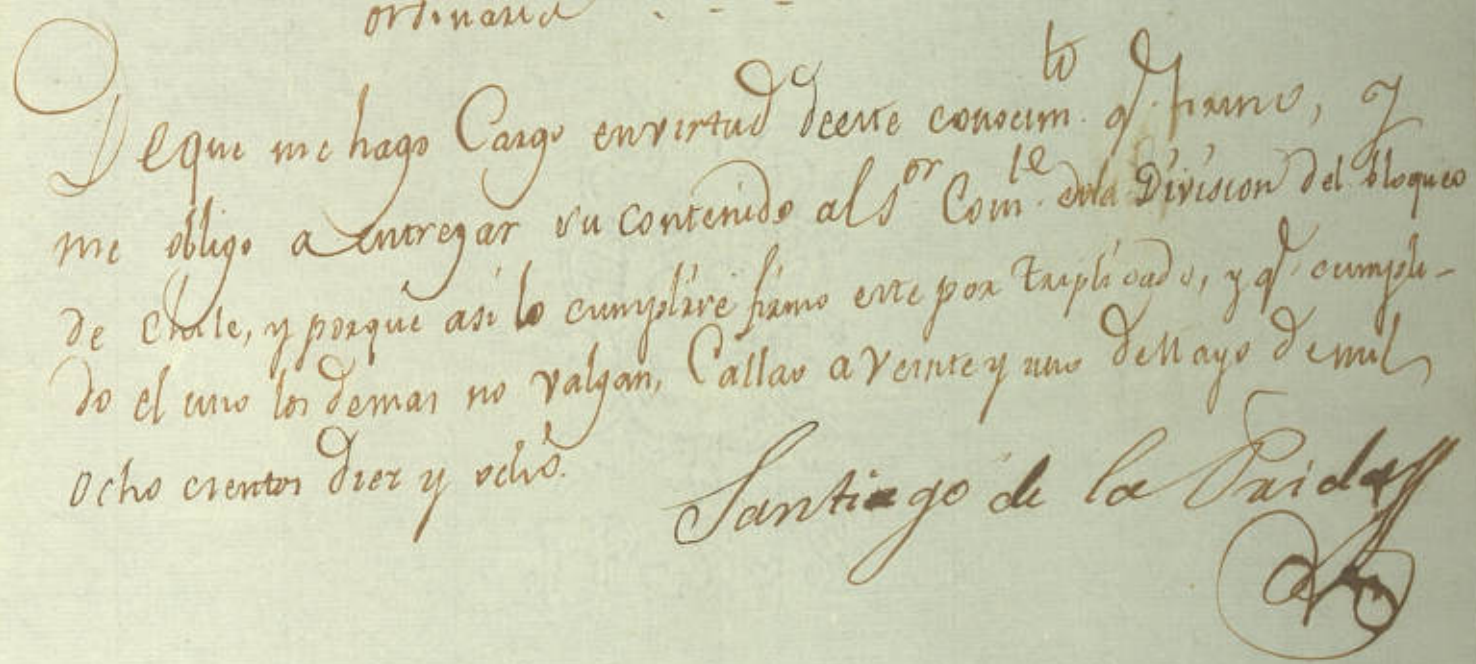 ordinaria - - -
De que me hago Cargo en virtud de este conocim.to q.e firmo, y
me obligo a entregar su contenido al S.or Com.te de la Division del bloqueo
de Chile, y porque asi lo cumplire firmo este por triplicado, y q.e cumpli-
do el uno los demas no valgan, Callao a Veinte y uno de Mayo de mil
ocho cientos diez y ocho.
Santiago de la Prida